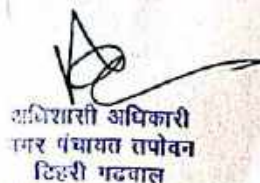 अधिशासी अधिकारी
नगर पंचायत तपोवन
टिहरी गढवाल